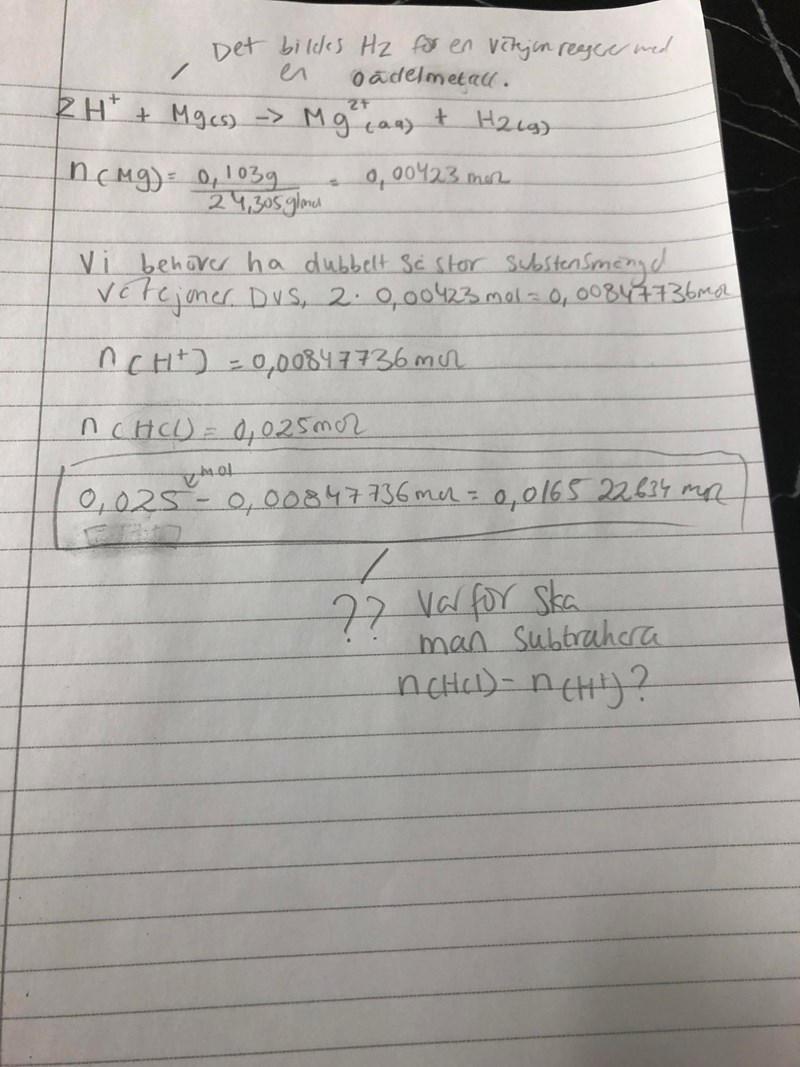 Det bildes H2 för en vätejon reager med
en oädelmetall.
2H⁺ + Mg(s) -> Mg²⁺(aq) + H2(g)
n(Mg) = 0,103g / 24,305g/mol = 0,00423 mol
Vi behöver ha dubbelt så stor substensmängd
vätejoner. DVS, 2 · 0,00423 mol = 0,00847736 mol
n(H⁺) = 0,00847736 mol
n(HCl) = 0,025 mol
mol
0,025 - 0,00847736 mol = 0,016522634 mol
?? Varför ska
man subtrahera
n(HCl) - n(H⁺)?